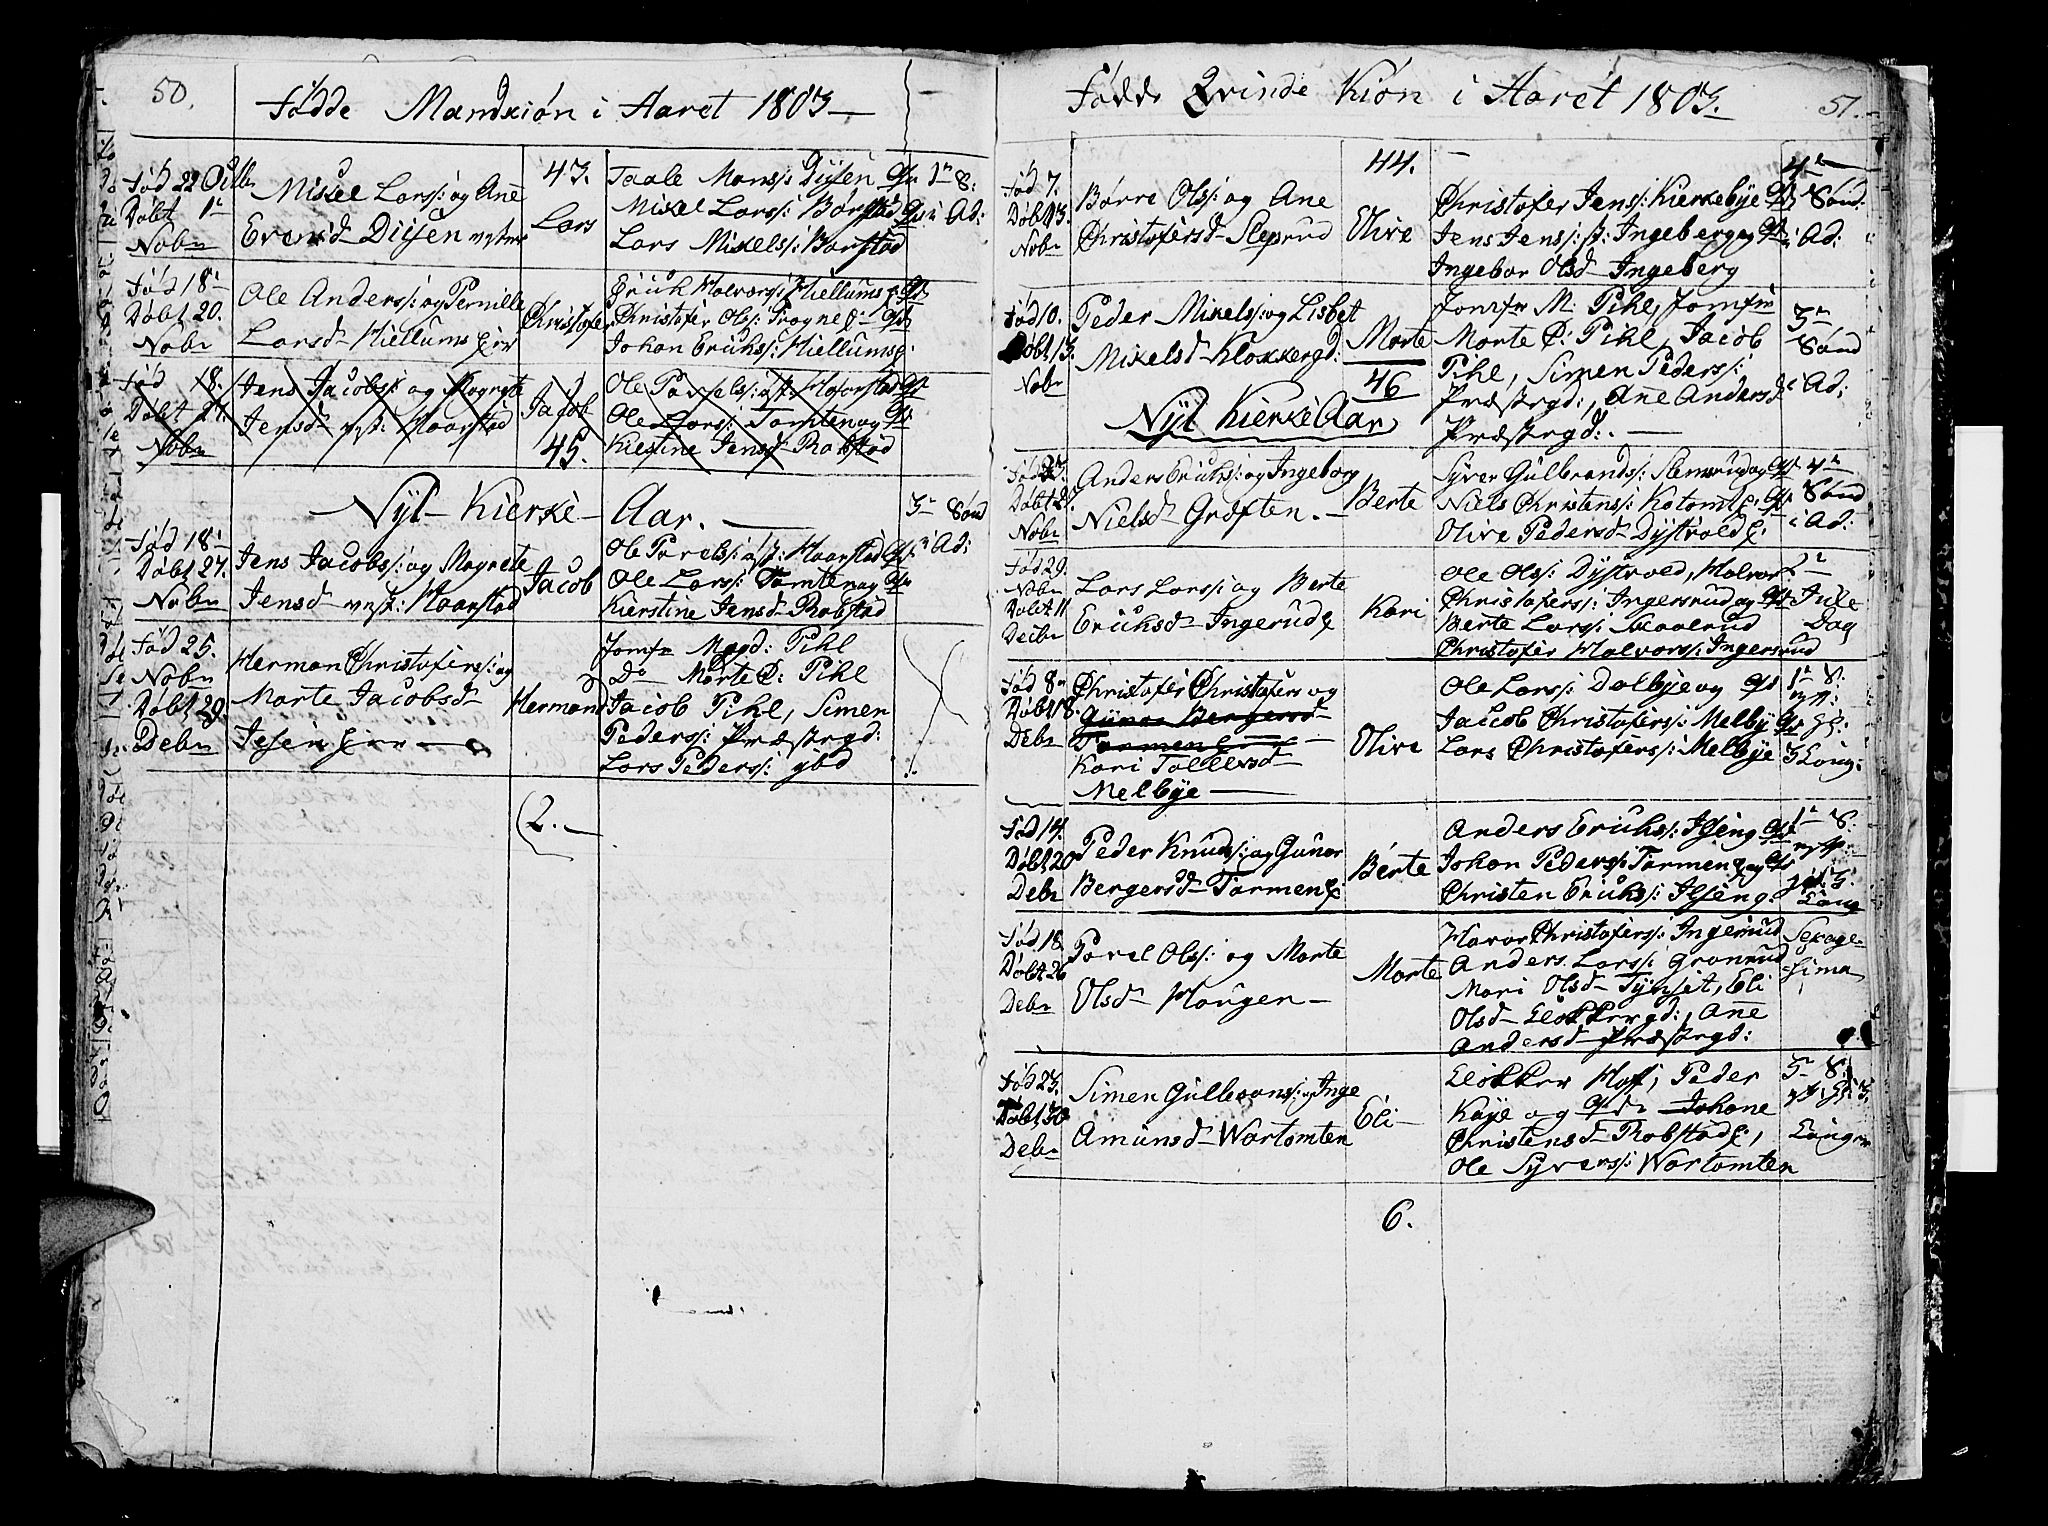 50.
Fødde Mandkiøn i Aaret 1803 —
43.
Fød 22 Octbr
Døbt 1e
Nobr
Mikel Larss: og Ane
Evensd Diisen
Lars
Taale Monss: Diisen
Mikel Larss: Borstad
Lars Mikelss: Borstad
1e S:
i Ad:
Fød 18e
Døbt 20.
Nobr
Ole Anderss: og Pernille
Larsd Hiellums
Christofer
Erick Halvorss: Hiellums
Christofer Olss: Frogne
Johan Erikss: Hiellums
Fød 18.
Døbt 27.
Nobr
Jens Jacobss: og Magrete
Jensd Haarstad
Jacob
45.
Ole Pavelss: Haarstad
Ole Larss: Tomten og
Kiestine Jensd Robstad
Nyt Kierke Aar.
Fød 18e
Døbt 27.
Nobr
Jens Jacobss: og Magrete
Jensd vest: Haarstad
Jacob
Ole Pavelss: Haarstad
Ole Larss: Tomten og
Kierstine Jensd Robstad
3e Sønd
i Ad:
Fød 25.
Nobr
Døbt 29.
Debr
Herman Christoferss: og
Marte Jacobsd
Herman
Jomfr Magd: Pihl
Do Marte C: Pihl
Jacob Pihl, Simen
Pederss: Præstegd:
Lars Pederss: ybd
2.
Fødde Qvinde Kiøn i Aaret 1803.
51.
44.
Fød 7.
Døbt 13.
Nobr
Børre Olss: og Ane
Christofersd Sleprud
Olive
Christofer Jenss: Kierkebye
Jens Jenss: Ingeberg og
Ingebor Olsd Ingeberg
4e
Sønd:
i Ad:
Fød 10.
Døbt 13.
Nobr
Peder Mikelss: og Lisbet
Mikelsd Klokkergd:
Marte
46
Jomfr M: Pihl, Jomfru
Marte C: Pihl, Jacob
Pihl, Simen Pederss:
Præstegd:, Ane Andersd
Præstegd:
3e
Sønd
i Ad:
Nyt Kierke Aar
Døbt 27
Nobr
Anders Erikss: og Ingeborg
Nielsd Grøften.
Berte
Syver Gulbrandss: Slemsrud og
Niels Christenss: Kolomt
Olive Pedersd Dystvold
4e
Sønd
i Ad:
Fød 29.
Nobr
Døbt 11
Debr
Lars Larss: og Berte
Eriksd Ingerud
Kari
Ole Olss: Dystvold, Halvor
Christoferss: Ingersrud og
Berte Larss:
Christofer Halvorss: Ingersrud
2e
Jule
Dag
Fød 8e
Døbt 18.
Debr
Christofer Christofers og
Gunor Bergersd
Tormen
Kari Tollersd
Melbye
Olive
Ole Larss: Dalbye og
Jacob Christoferss: Melby
Lars Christoferss: Melbye
1e S:
Fød 14.
Døbt 20
Debr
Peder Knuds: og Gunor
Bergersd Tormen
Berte
Anders Erikss: Ilseng
Johan Pederss: Tormen og
Christen Erikss: Ilseng:
1e S:
Fød 18.
Døbt 26
Debr
Pavel Olss: og Marte
Olsd Haugen
Marte
Christoferss: Ingerud
Anders Larss: Gronrud
Mari Olsd Tynset, Eli
Olsd Klokkergd:, Ane
Andersd Præstegd:
Sexage-
sima
Fød 23.
Døbt 30
Debr
Simen Gullevons: og Inge
Amunsd Wartomten
Eli
Klokker Hoff, Peder
Kaye og Johane
Christensd Robstad,
Ole Syverss: Wartomten
6.